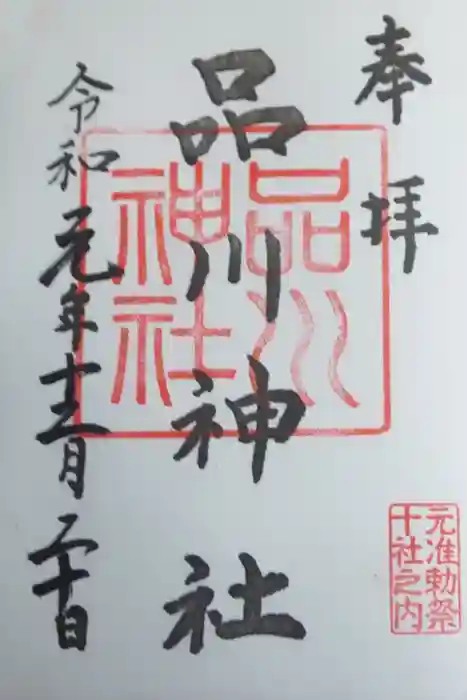 奉拝
品川神社
令和元年十二月二十日
品川
神社
元准勅祭
十社之内